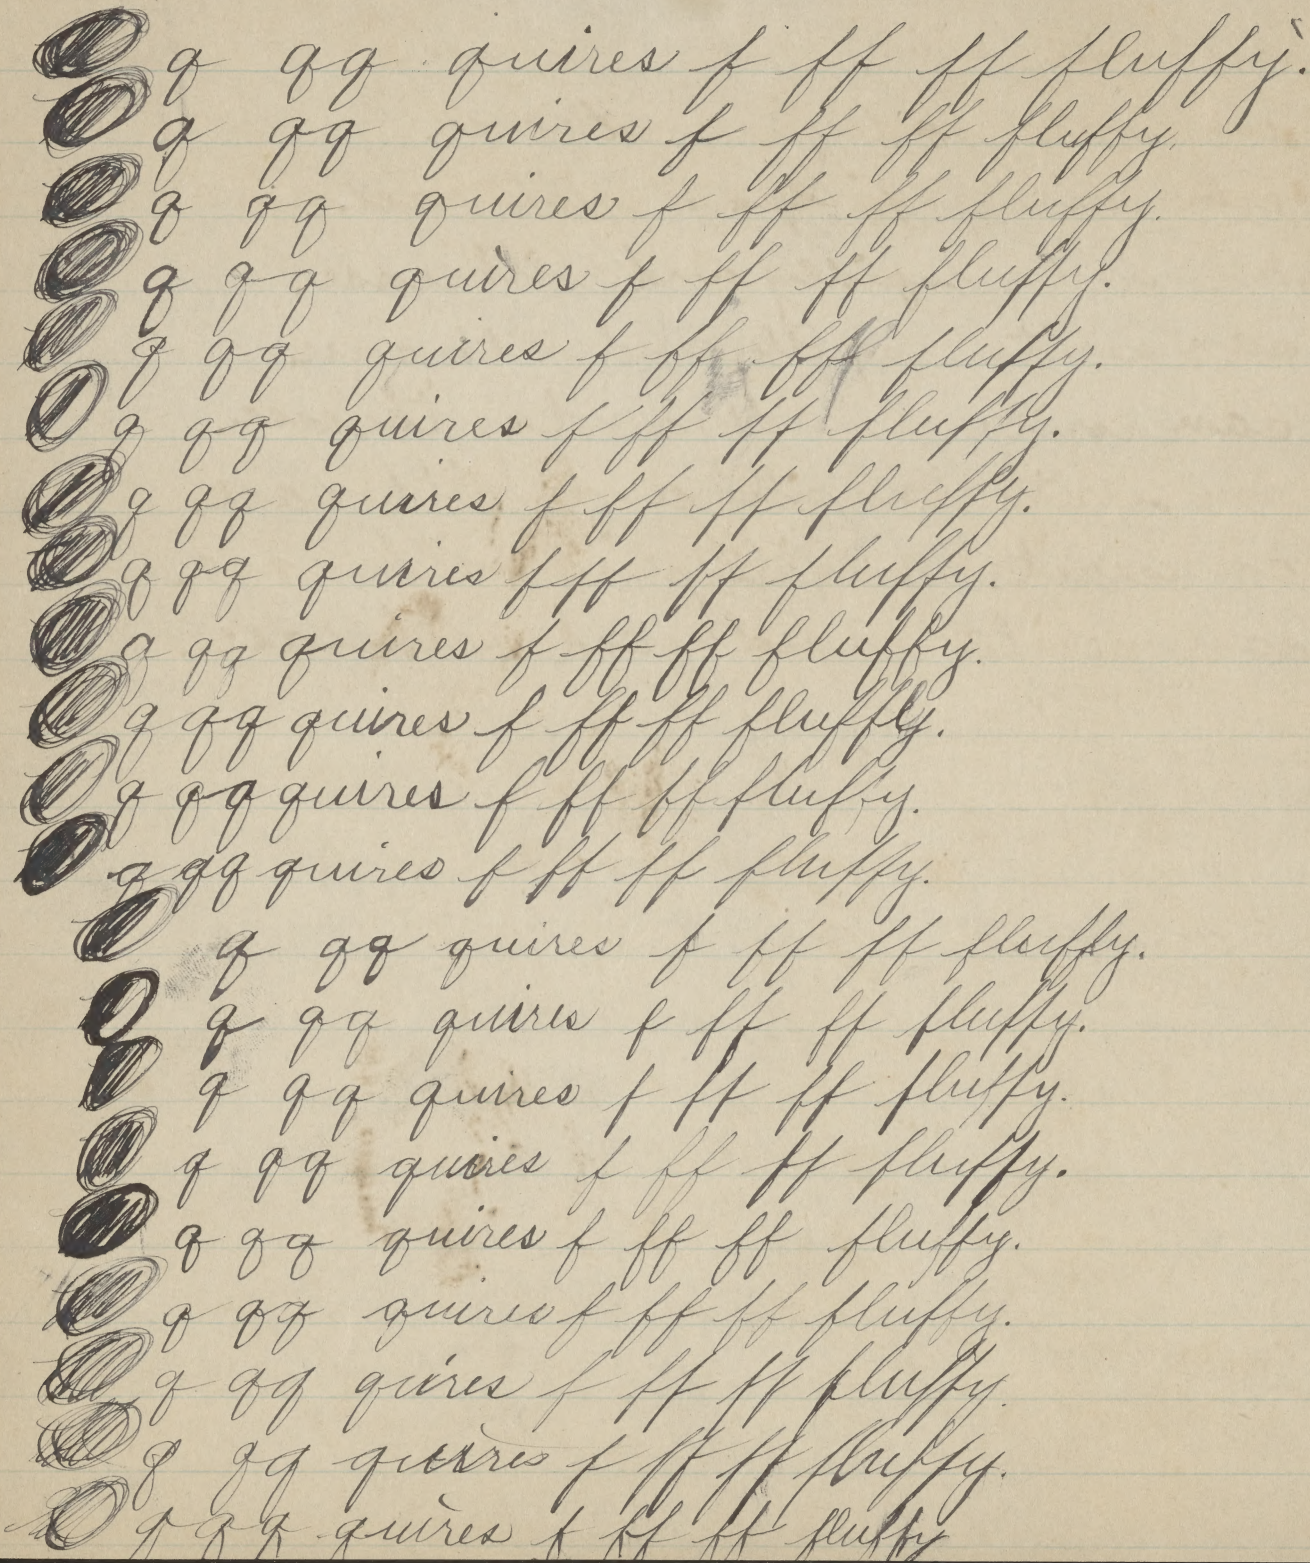 q qq quires f ff ff fluffy.
q qq quires f ff ff fluffy.
q qq quires f ff ff fluffy.
q qq quires f ff ff fluffy.
q qq quires f ff ff fluffy.
q qq quires f ff ff fluffy.
q qq quires f ff ff fluffy.
q qq quires f ff ff fluffy.
q qq quires f ff ff fluffy.
q qq quires f ff ff fluffy.
q qq quires f ff ff fluffy.
q qq quires f ff ff fluffy.
q qq quires f ff ff fluffy.
q qq quires f ff ff fluffy.
q qq quires f ff ff fluffy.
q qq quires f ff ff fluffy.
q qq quires f ff ff fluffy.
q qq quires f ff ff fluffy.
q qq quires f ff ff fluffy.
q qq quires f ff ff fluffy.
q qq quires f ff ff fluffy